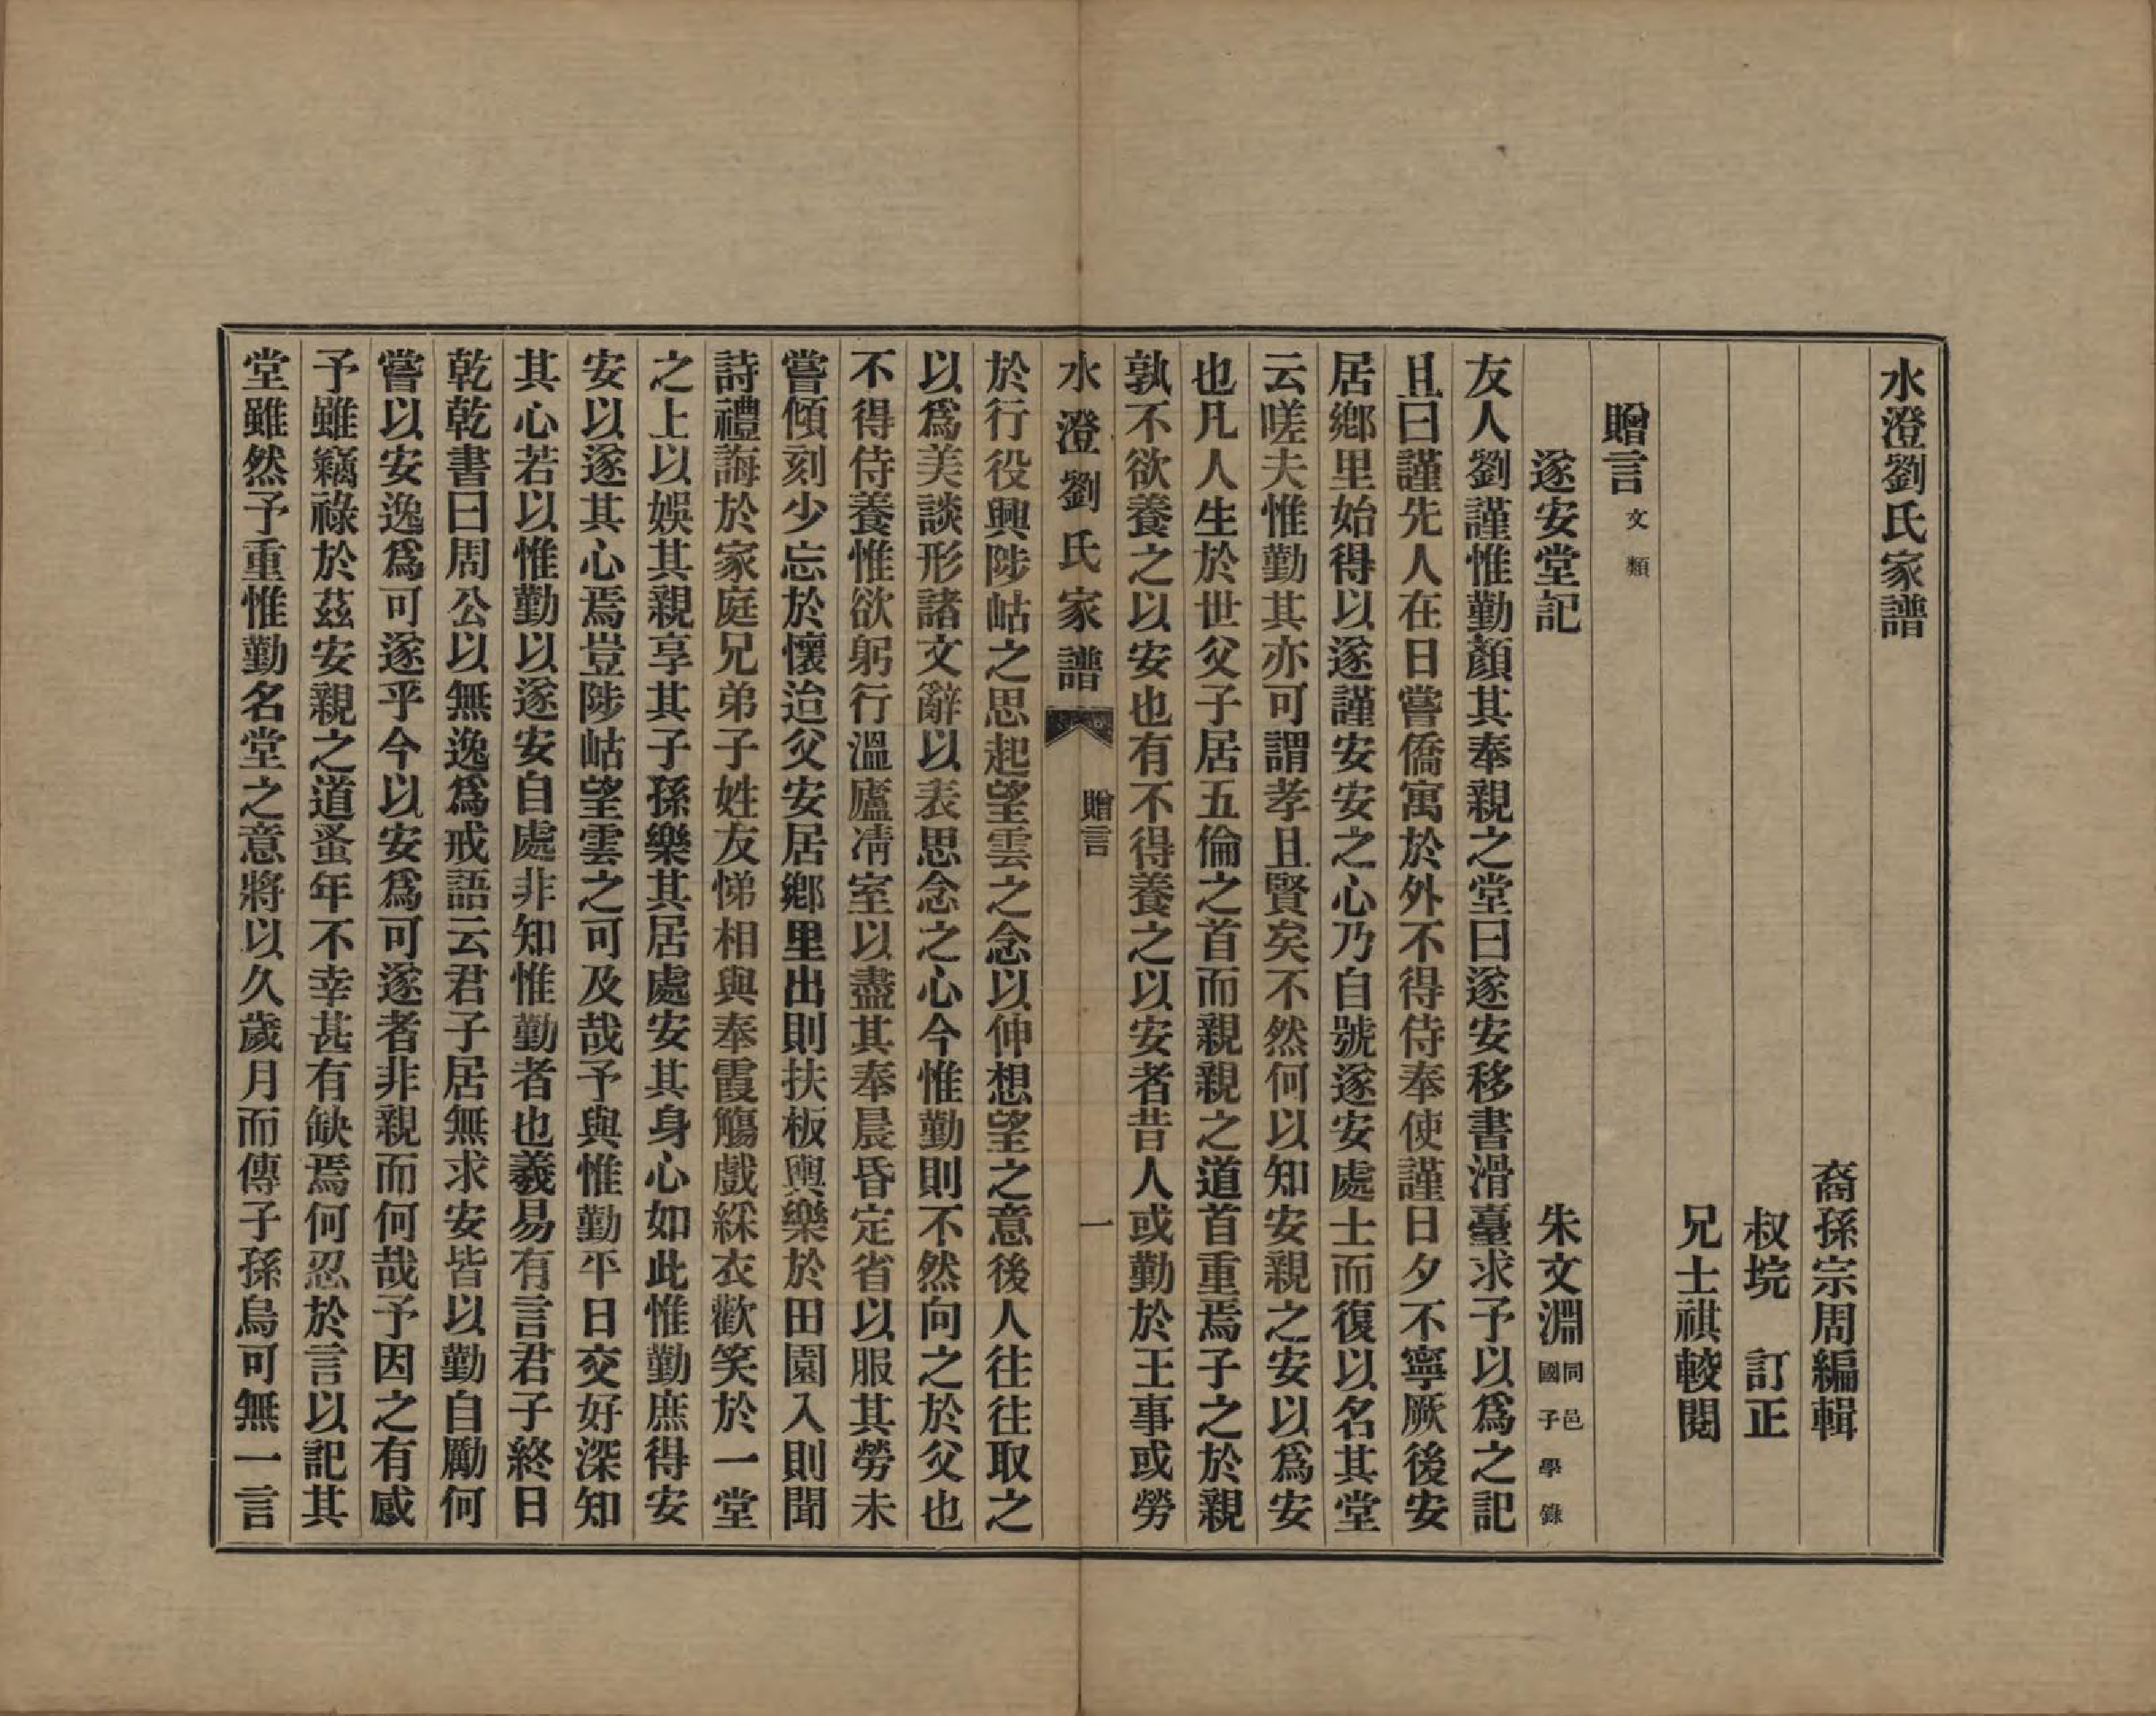 水澄劉氏家譜
裔孫宗周編輯
叔垸　訂正
兄士祺較閱
贈言 文類
遂安堂記　朱文淵 同邑國子學錄
友人劉謹惟勤顏其奉親之堂曰遂安移書滑臺求予以爲之記
且曰謹先人在日嘗僑寓於外不得侍奉使謹日夕不寧厥後安
居鄉里始得以遂謹安安之心乃自號遂安處士而復以名其堂
云嗟夫惟勤其亦可謂孝且賢矣不然何以知安親之安以爲安
也凡人生於世父子居五倫之首而親親之道首重焉子之於親
孰不欲養之以安也有不得養之以安者昔人或勤於王事或勞
水澄劉氏家譜　贈言　一
於行役興陟岵之思起望雲之念以伸想望之意後人往往取之
以爲美談形諸文辭以表思念之心今惟勤則不然向之於父也
不得侍養惟欲躬行溫廬凊室以盡其奉晨昏定省以服其勞未
嘗傾刻少忘於懷迨父安居鄉里出則扶板輿樂於田園入則聞
詩禮誨於家庭兄弟子姓友悌相與奉霞觴戲綵衣歡笑於一堂
之上以娛其親享其子孫樂其居處安其身心如此惟勤庶得安
安以遂其心焉豈陟岵望雲之可及哉予與惟勤平日交好深知
其心若以惟勤以遂安自處非知惟勤者也羲易有言君子終日
乾乾書曰周公以無逸爲戒語云君子居無求安皆以勤自勵何
嘗以安逸爲可遂乎今以安爲可遂者非親而何哉予因之有感
予雖竊祿於茲安親之道蚤年不幸甚有缺焉何忍於言以記其
堂雖然予重惟勤名堂之意將以久歲月而傳子孫烏可無一言